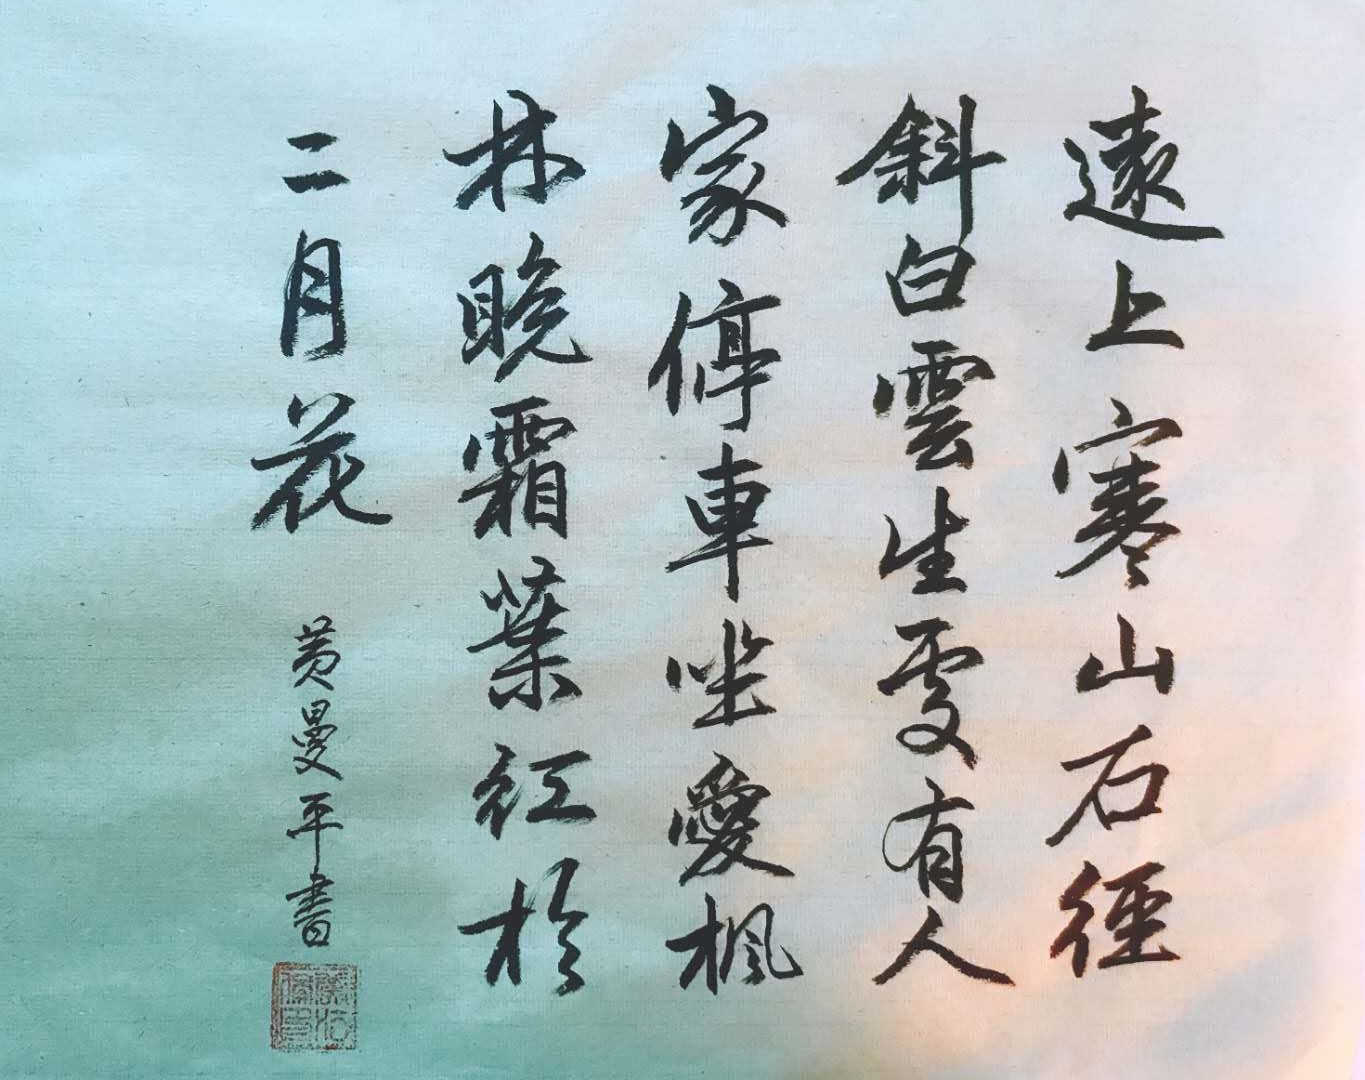 遠上寒山石徑
斜白雲生處有人
家停車坐愛楓
林晚霜葉紅於
二月花
黄曼平書